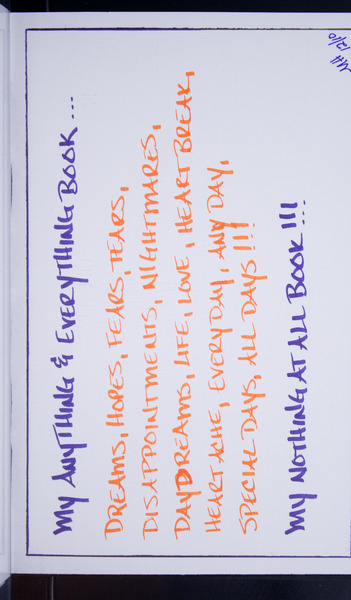 My ANYTHING & EVERYTHING BOOK...
DREAMS, HOPES, FEARS, TEARS,
DISAPPOINTMENTS, NIGHTMARES,
DAYDREAMS, LIFE, LOVE, HEARTBREAK,
HEARTACHE, EVERYDAY, ANY DAY,
SPECIAL DAYS, ALL DAYS!!!
My NOTHING AT ALL BOOK!!!...